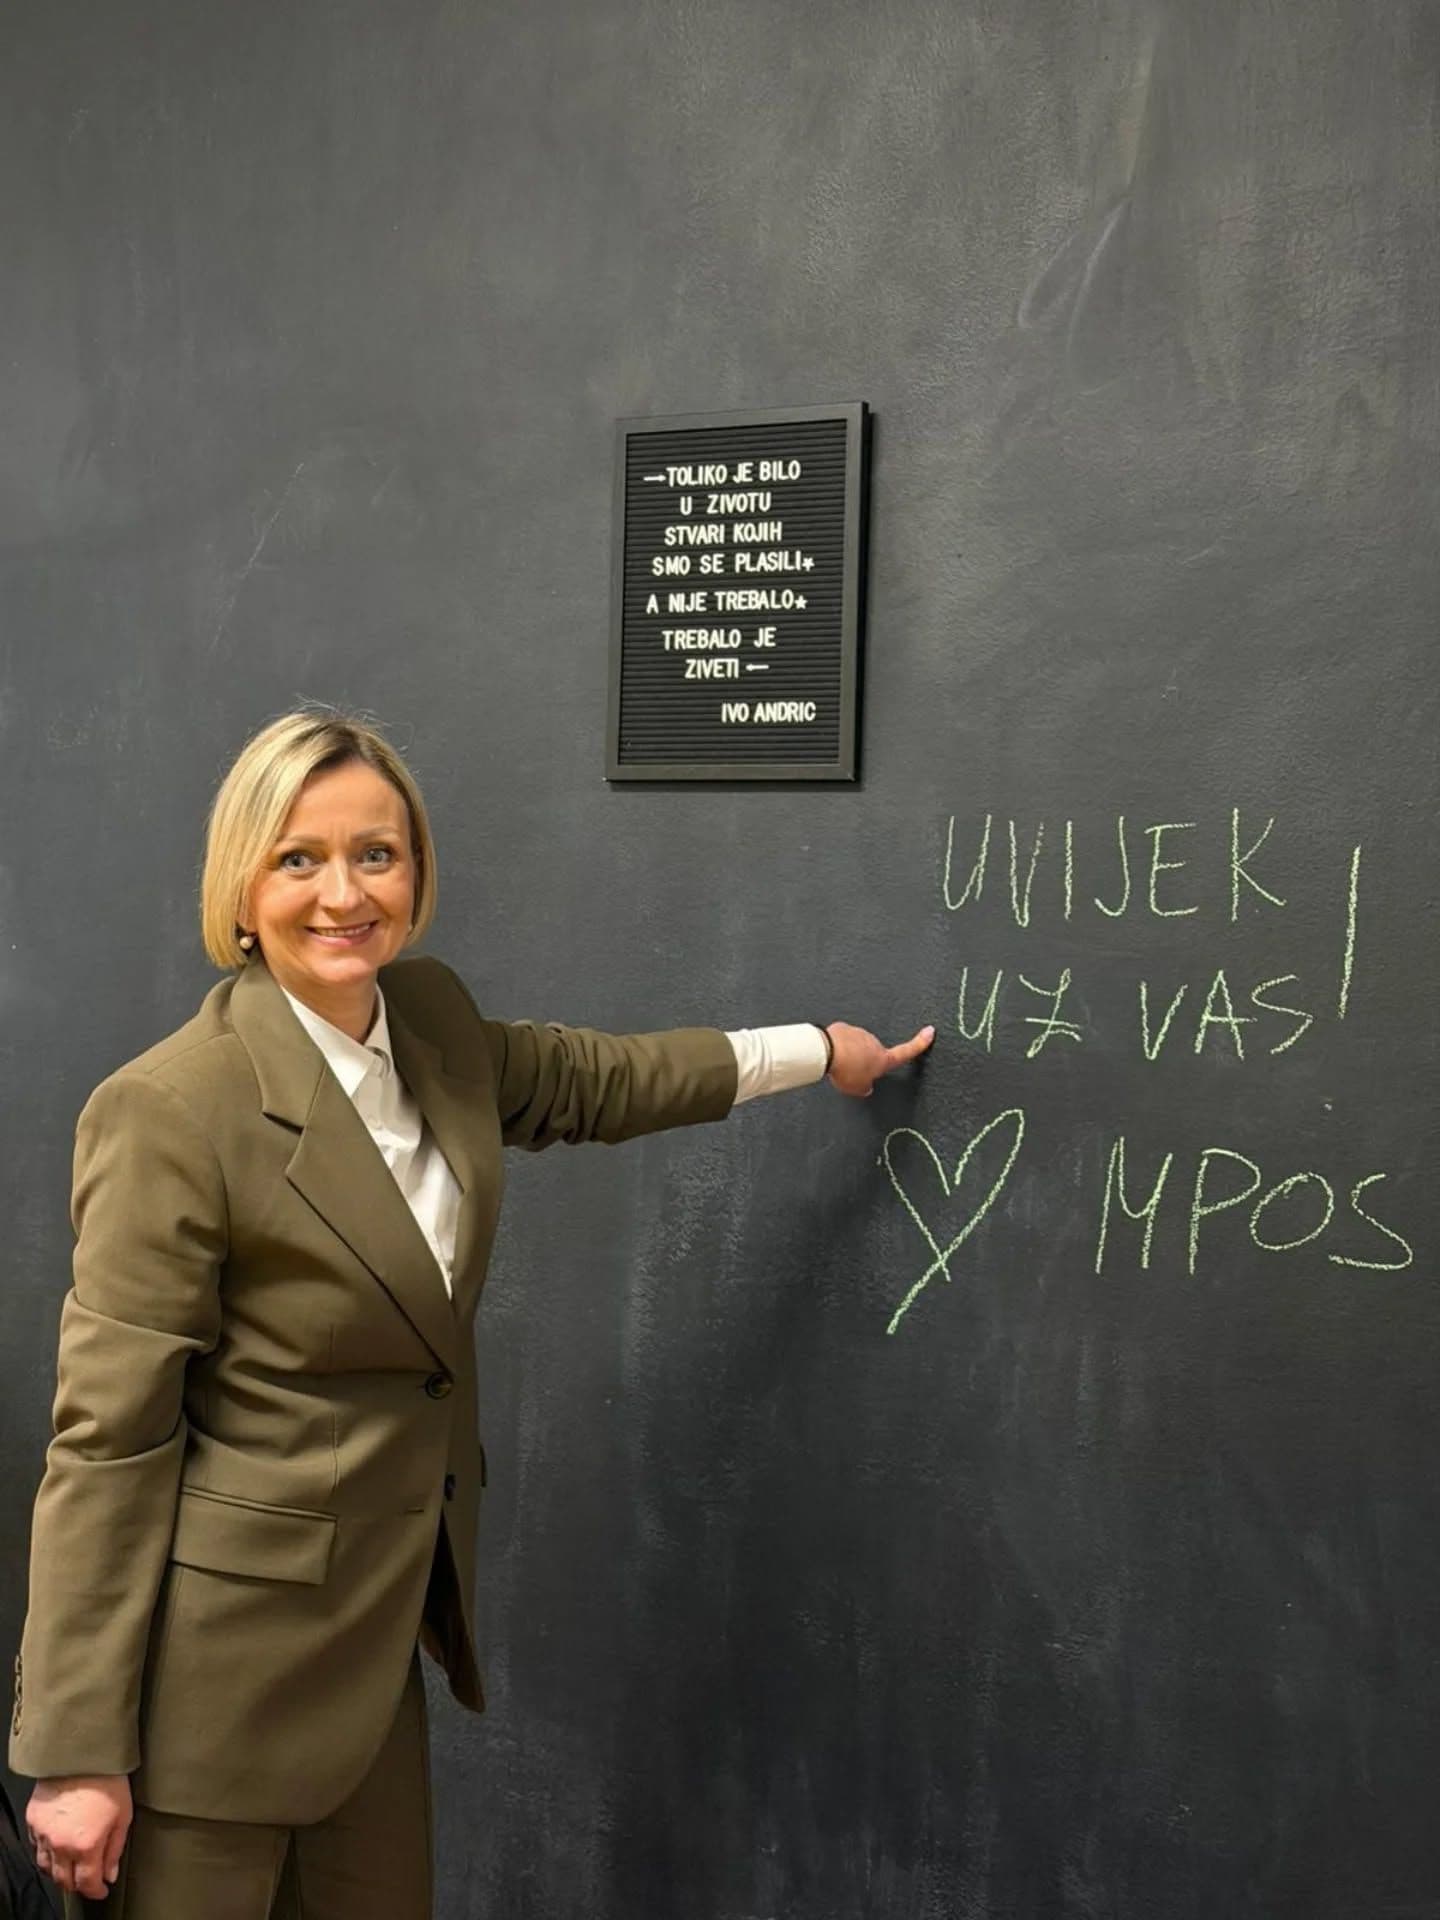 →TOLIKO JE BILO
U ZIVOTU
STVARI KOJIH
SMO SE PLASILI★
A NIJE TREBALO★
TREBALO JE
ZIVETI ←
IVO ANDRIC
UVIJEK
UZ VAS!
♡ MPOS